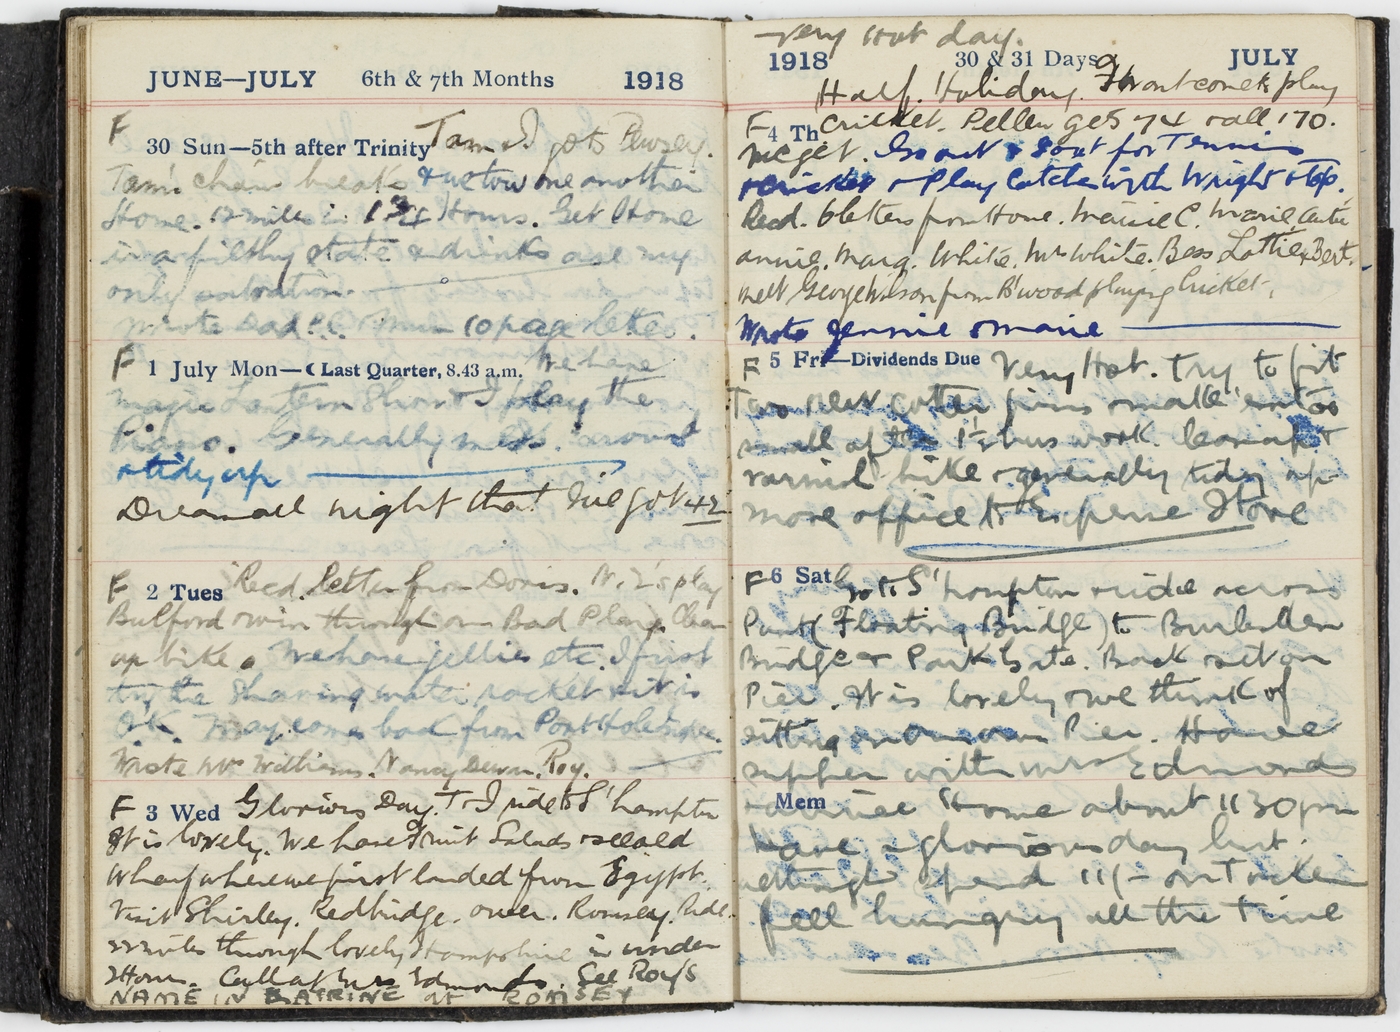 JUNE—JULY 6th & 7th Months 1918
F 30 Sun—5th after Trinity Tam & I go to Pewsey.
Tam's chain breaks & we tow one another
Home. 12 miles in 1 3/4 Hours. Get Home
in a filthy state & drinks are my
only salvation.
Wrote Dad 10 page letter.
F 1 July Mon—☾ Last Quarter, 8.43 a.m. We have
magic Lantern Show & I play the
Piano. Generally mess around
& tidy up
Dream all night that I've got
F 2 Tues Recd. letter from Doris. N. Z's play
Bulford & win through our Bad Play. Clean
up bike. We have jellies etc. I first
try the Shaving water racket & it is
O.K. May comes back from
Wrote Mrs Williams. Nancy Roy.
F 3 Wed Glorious Day. T & I ride to S'hampton
It is lovely. We have Fruit Salads & see old
Wharf where we first landed from Egypt.
Visit Shirley. Redbridge. Ower. Romsey. Ride
22 miles through lovely Hampshire in under
2 Hours. Call at Mrs Edmonds. See Roy's
NAME IN LATRINE AT ROMSEY
Very Hot day.
1918 30 & 31 Days JULY
Half Holiday. I want come & play
F 4 Th cricket. Pellew gets 74 & all 170.
we get. Go out & for Tennis
& cricket & Play Catch with Wright & Top.
Recd. 6 letters from Home. Maisie C. Marie,
annie. Marg. White. Mrs White. Bess Lottie & Bert.
Meet George Wilson from B'wood playing Cricket.
Wrote Jennie & Marie
F 5 Fri—Dividends Due Very Hot. Try to fit
Two new cotter pins & make 'em too
small after 1½ hrs work. Clean up &
varnish bike & generally tidy up
more office
F 6 Sat Go to S'hampton & ride across
Punt (Floating Bridge) to Bursledon
Bridge & Park Gate. Back & sit on
Pier. It is lovely & we think of
sitting on our own Pier. Have
supper with Mrs Edmonds
Mem & arrive Home about 11 30 pm
Have a glorious day but
spend 11/- on Tucker
feel hungry all the time